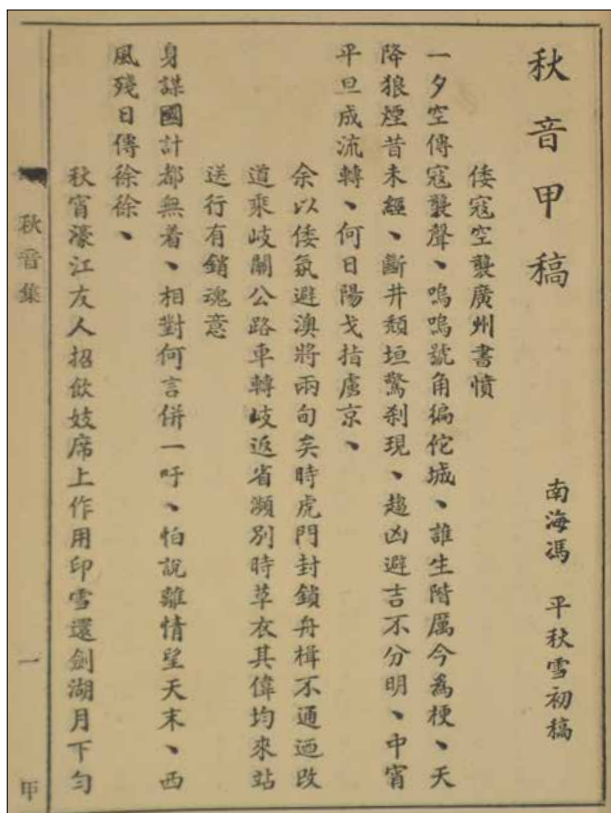 秋音甲稿
南海馮　平秋雪初稿
倭寇空襲廣州書憤
一夕空傳寇襲聲、嗚嗚號角徧佗城、誰生階厲今爲梗、天
降狼煙昔未經、斷井頹垣驚刹現、趨凶避吉不分明、中宵
平旦成流轉、何日陽戈指虜京、
余以倭氛避澳將兩旬矣時虎門封鎖舟楫不通迺改
道乘岐關公路車轉岐返省瀕別時草衣其偉均來站
送行有銷魂意
身謀國計都無着、相對何言併一吁、怕說離情望天末、西
風殘日傳徐徐、
秋宵濠江友人招飲妓席上作用印雪還劍湖月下勻
秋音集
一
甲